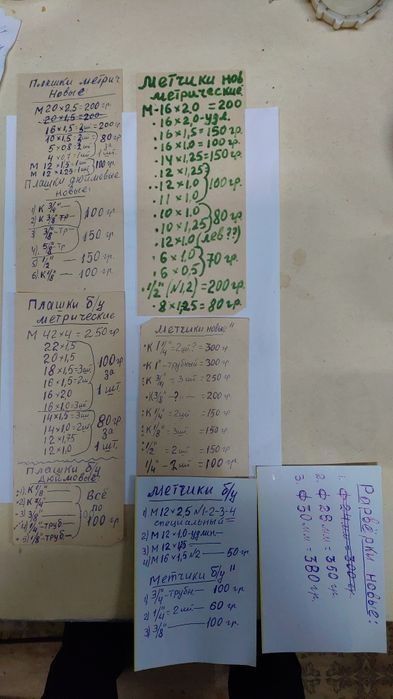 Плашки метрич
Новые:
М 20 × 2,5 = 200 гр
20 × 1,5 = 200
16 × 1,5 = 2 шт = 200 гр
10 × 1,5 2 шт
5 × 0,8 2 шт
80 гр за 1 шт.
М 12 × 1,5 - 1 шт
М 12 × 1,25 1 шт
100 гр.
Плашки дюймовые
новые:
1) К 3/4"
100 гр
150 гр
5) 1/2" — 150 гр.
— 100 гр
Плашки б/у
метрические
М 42 × 4 = 250 гр
22 × 1,5
20 × 1,5
18 × 1,5 = 3 шт
16 × 1,5 = 2 шт
16 × 2,0
16 × 1,0 = 3 шт
100 гр за 1 шт
14 × 1,5 = 3 шт
14 × 1,0 = 2 шт
12 × 1,75
12 × 1,0
80 гр за 1 шт.
Плашки б/у
Дюймовые
Всё по 100 гр
Метчики нов
метрические
М - 16 × 2,0 = 200
16 × 2,0 - удл.
16 × 1,5 = 150 гр.
16 × 1,0 = 100 гр.
14 × 1,25 = 150 гр
12 × 1,25
12 × 1,0
11 × 1,0
100 гр.
10 × 1,0
10 × 1,25
80 гр
12 × 1,0 (лев??)
6 × 1,0
6 × 0,5
70 гр.
1/2" (N1,2) = 200 гр
8 × 1,25 = 80 гр.
Метчики новые"
К 1 1/4" = 2 шт? = 300 гр
К 1" - трубный = 300 гр
К 3/4" = 3 шт = 250 гр
К 3/8" - ? — = 200 гр
К 1/4" = 2 шт = 150 гр
К 1/8" = 3 шт = 150 гр.
1/2" = 2 шт = 150 гр
1/4" - 2 шт = 100 гр
Метчики б/у
1) М 12 × 2,5 N1-2-3-4
специальный
2) М 12 × 1,0 -
3) М 12 × 1,5 —
4) М 16 × 1,5 N2 — 50 гр
Метчики б/у"
1) 3/4" - трубн — 100 гр
2) 1/4" = 2 шт — 60 гр
3) 3/8" — 100 гр.
Розвёрки новые:
1. Ф 24 мм = 300 гр
2. Ф 28 мм = 350 гр.
3. Ф 30 мм = 380 гр.